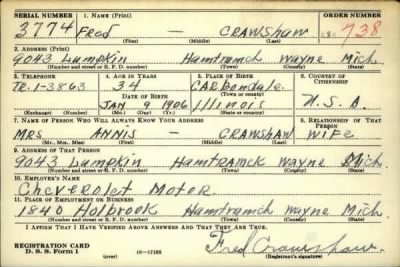 SERIAL NUMBER 1. NAME (Print) ORDER NUMBER
3774 Fred — CRAWSHAW 738
(First) (Middle) (Last)
2. ADDRESS (Print)
9043 Lumpkin Hamtramck Wayne Mich.
(Number and street or R. F. D. number) (Town) (County) (State)
3. TELEPHONE 4. AGE IN YEARS 5. PLACE OF BIRTH 6. COUNTRY OF CITIZENSHIP
TR. 1-3863 34 CARbondale
DATE OF BIRTH (Town or county)
JAN 9 1906 Illinois U.S.A.
(Exchange) (Number) (Mo.) (Day) (Yr.) (State or country)
7. NAME OF PERSON WHO WILL ALWAYS KNOW YOUR ADDRESS 8. RELATIONSHIP OF THAT PERSON
MRS ANNIS — CRAWSHAW Wife
(Mr., Mrs., Miss) (First) (Middle) (Last)
9. ADDRESS OF THAT PERSON
9043 Lumpkin Hamtramck Wayne Mich.
(Number and street or R. F. D. number) (Town) (County) (State)
10. EMPLOYER'S NAME
Cheverolet Motor
11. PLACE OF EMPLOYMENT OR BUSINESS
1840 Holbrook Hamtramck Wayne Mich.
(Number and street or R. F. D. number) (Town) (County) (State)
I AFFIRM THAT I HAVE VERIFIED ABOVE ANSWERS AND THAT THEY ARE TRUE.
REGISTRATION CARD
D. S. S. Form 1 (over) 16—17105 Fred Crawshaw
(Registrant's signature)